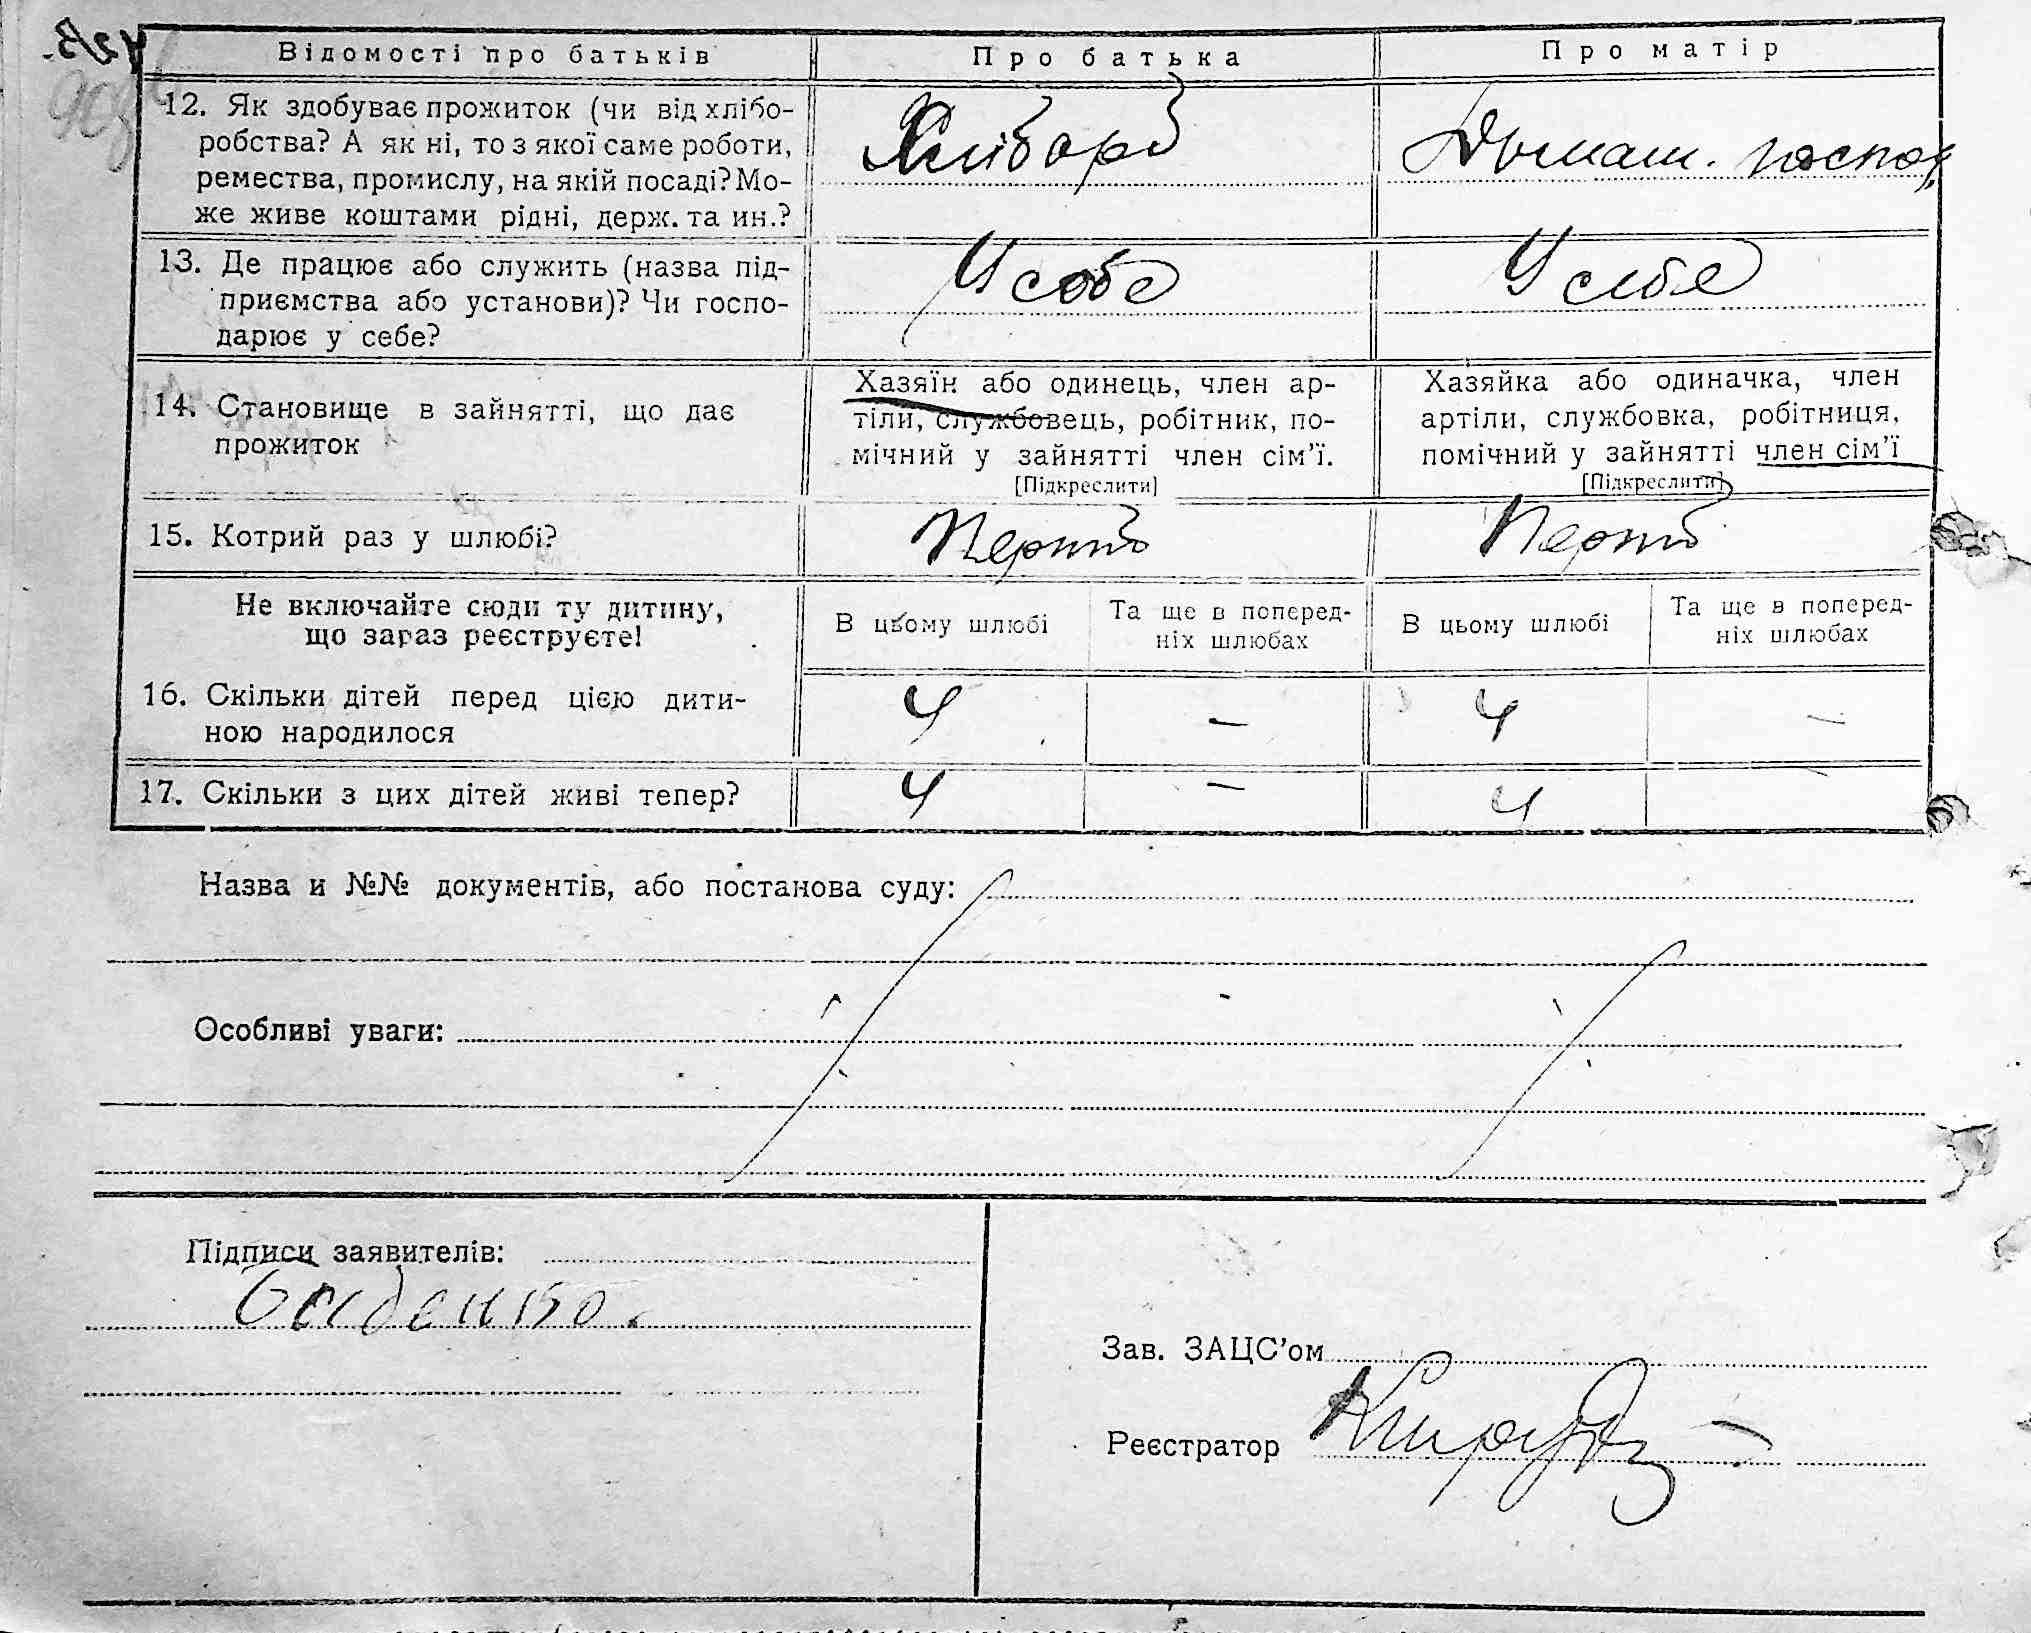 Відомості про батьків Про батька Про матір
12. Як здобуває прожиток (чи від хлібо-
робства? А як ні, то з якої саме роботи,
ремества, промислу, на якій посаді? Мо-
же живе коштами рідні, держ. та ин.?
Хлібороб
Домаш. господ.
13. Де працює або служить (назва під-
приємства або установи)? Чи госпо-
дарює у себе?
У собе
У себе
14. Становище в зайнятті, що дає
прожиток
Хазяїн або одинець, член ар-
тіли, службовець, робітник, по-
мічний у зайнятті член сім'ї.
[Підкреслити]
Хазяйка або одиначка, член
артіли, службовка, робітниця,
помічний у зайнятті член сім'ї
[Підкреслити]
15. Котрий раз у шлюбі?
Не включайте сюди ту дитину,
що зараз реєструєте!
В цьому шлюбі
Та ще в поперед-
ніх шлюбах
В цьому шлюбі
Та ще в поперед-
ніх шлюбах
16. Скільки дітей перед цією дити-
ною народилося
4 — 4 —
17. Скільки з цих дітей живі тепер?
4 — 4
Назва и №№ документів, або постанова суду:
Особливі уваги:
Підписи заявителів:
Зав. ЗАЦС'ом
Реєстратор